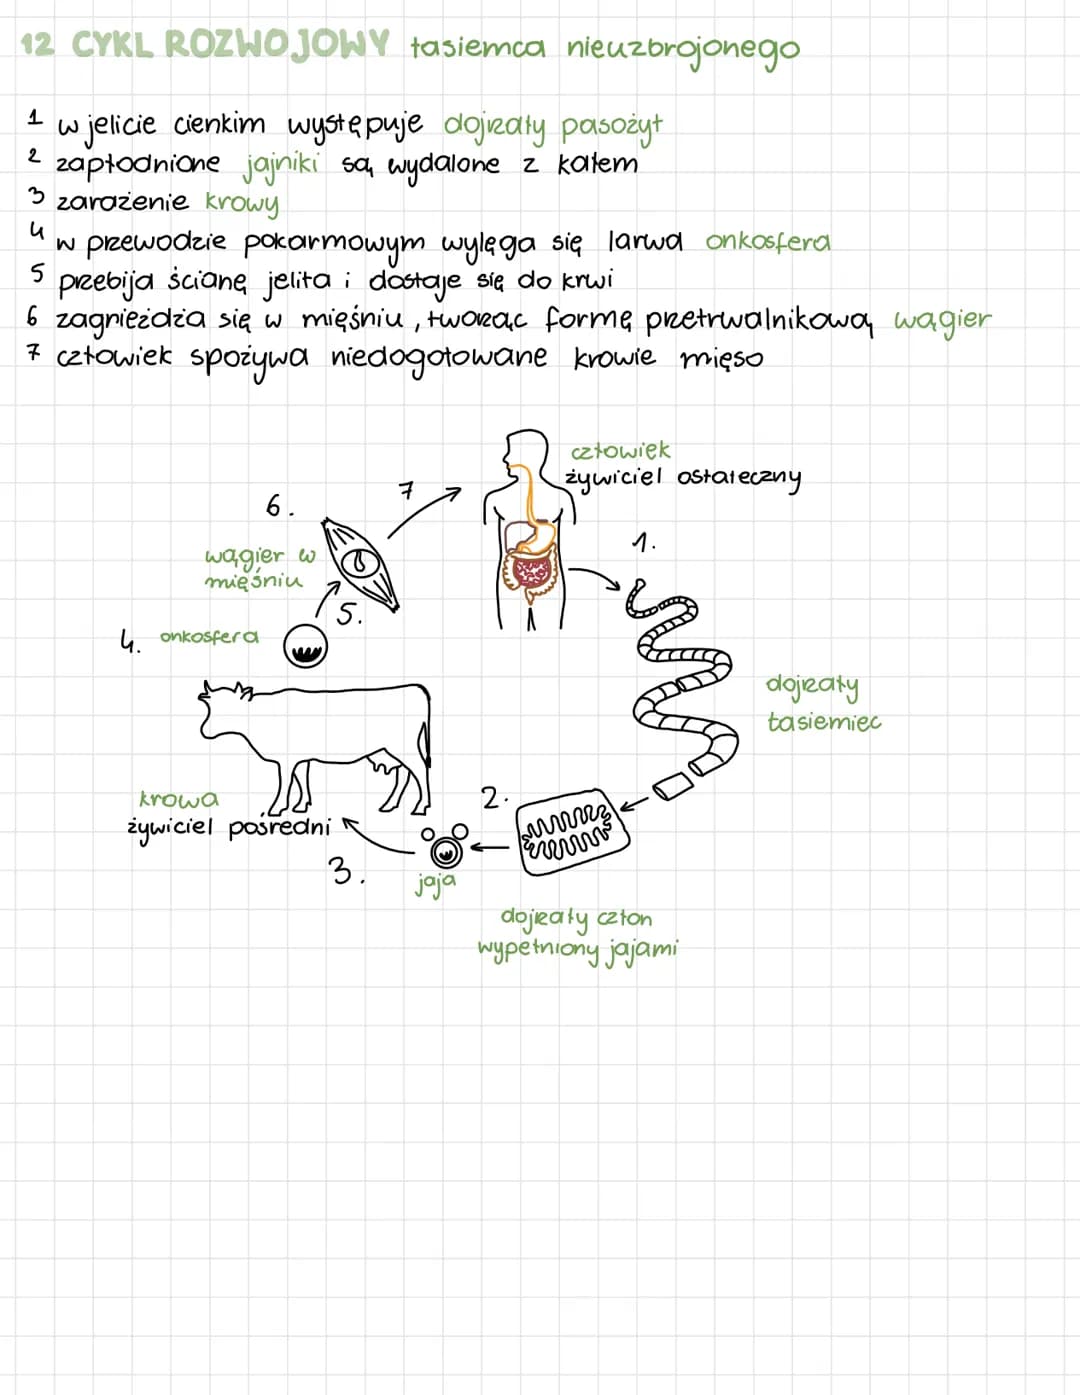 12 CYKL ROZWOJOWY tasiemca nieuzbrojonego
1 w jelicie cienkim występuje dojrzały pasożyt
2 zapłodnione jajniki są wydalone z kałem
3 zarażenie krowy
4 w przewodzie pokarmowym wylęga się larwa onkosfera
5 przebija ścianę jelita i dostaje się do krwi
6 zagnieżdża się w mięśniu, tworząc formę przetrwalnikową wągier
7 człowiek spożywa niedogotowane krowie mięso
człowiek
żywiciel ostateczny
7
6.
1.
wągier w
mięśniu
5.
4. onkosfera
dojrzały
tasiemiec
krowa
żywiciel pośredni
2.
3.
jaja
dojrzały człon
wypełniony jajami